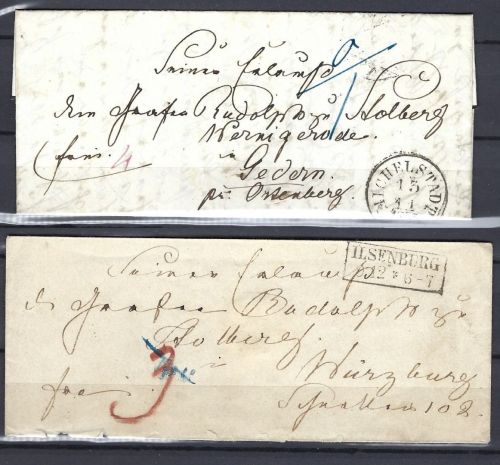 Seiner Erlaucht
dem Grafen Rudolph zu Stolberg
Wernigerode.
in
frei. 4
Gedern.
pr. Ortenberg.
MICHELSTADT
15
11
ILSENBURG
12 6-7
Seiner Erlaucht
d Grafen Rudolph zu
Stolberg.
3
Würzburg
frei
102.